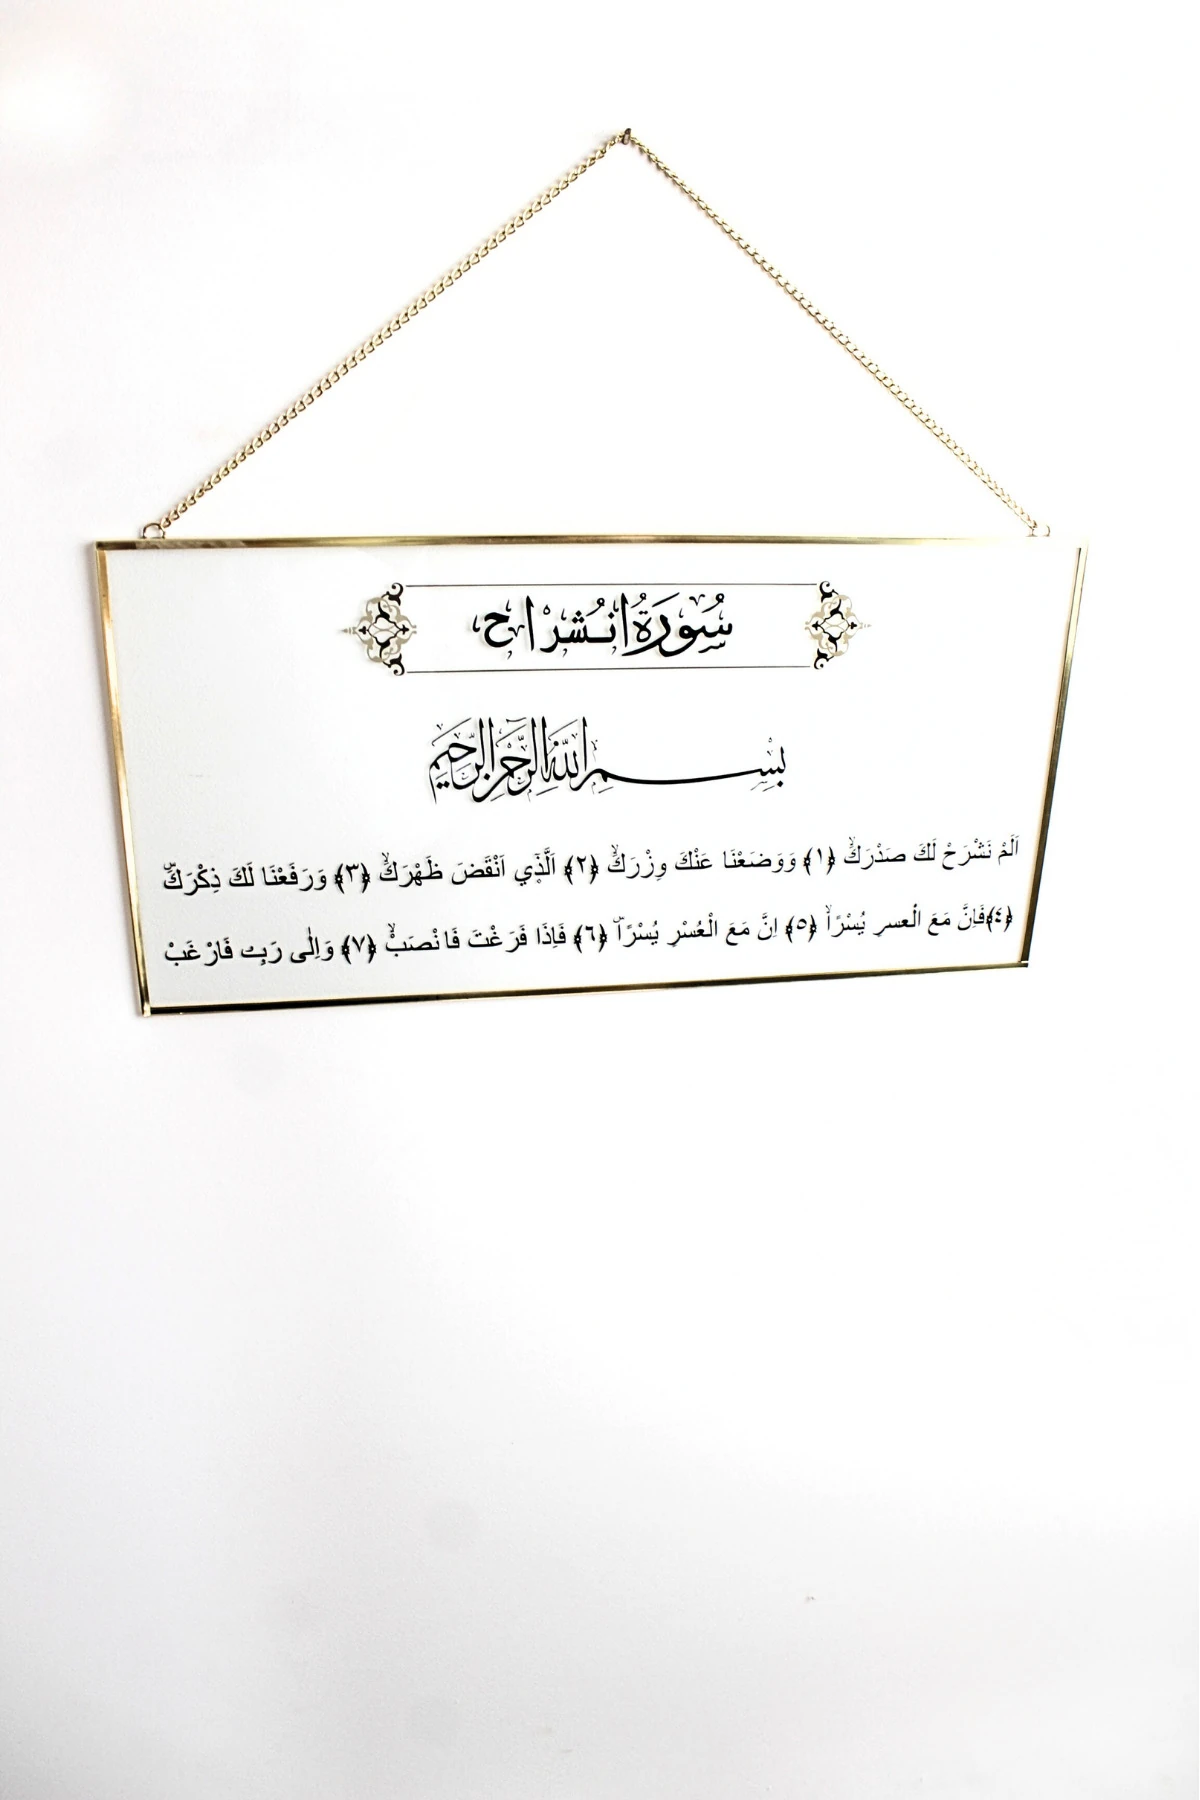 سُورَةُ انـُشـْرَاح
بِسْمِ اللّٰهِ الرَّحْمٰنِ الرَّحِيمِ
اَلَمْ نَشْرَحْ لَكَ صَدْرَكَۙ ﴿١﴾ وَوَضَعْنَا عَنْكَ وِزْرَكَۙ ﴿٢﴾ اَلَّذ۪ٓي اَنْقَضَ ظَهْرَكَۙ ﴿٣﴾ وَرَفَعْنَا لَكَ ذِكْرَكَۜ
﴿٤﴾فَاِنَّ مَعَ الْعسرِ يُسْرًاۙ ﴿٥﴾ اِنَّ مَعَ الْعُسْرِ يُسْرًاۜ ﴿٦﴾ فَاِذَا فَرَغْتَ فَانْصَبْۙ ﴿٧﴾ وَاِلٰى رَبِك فَارْغَبْ